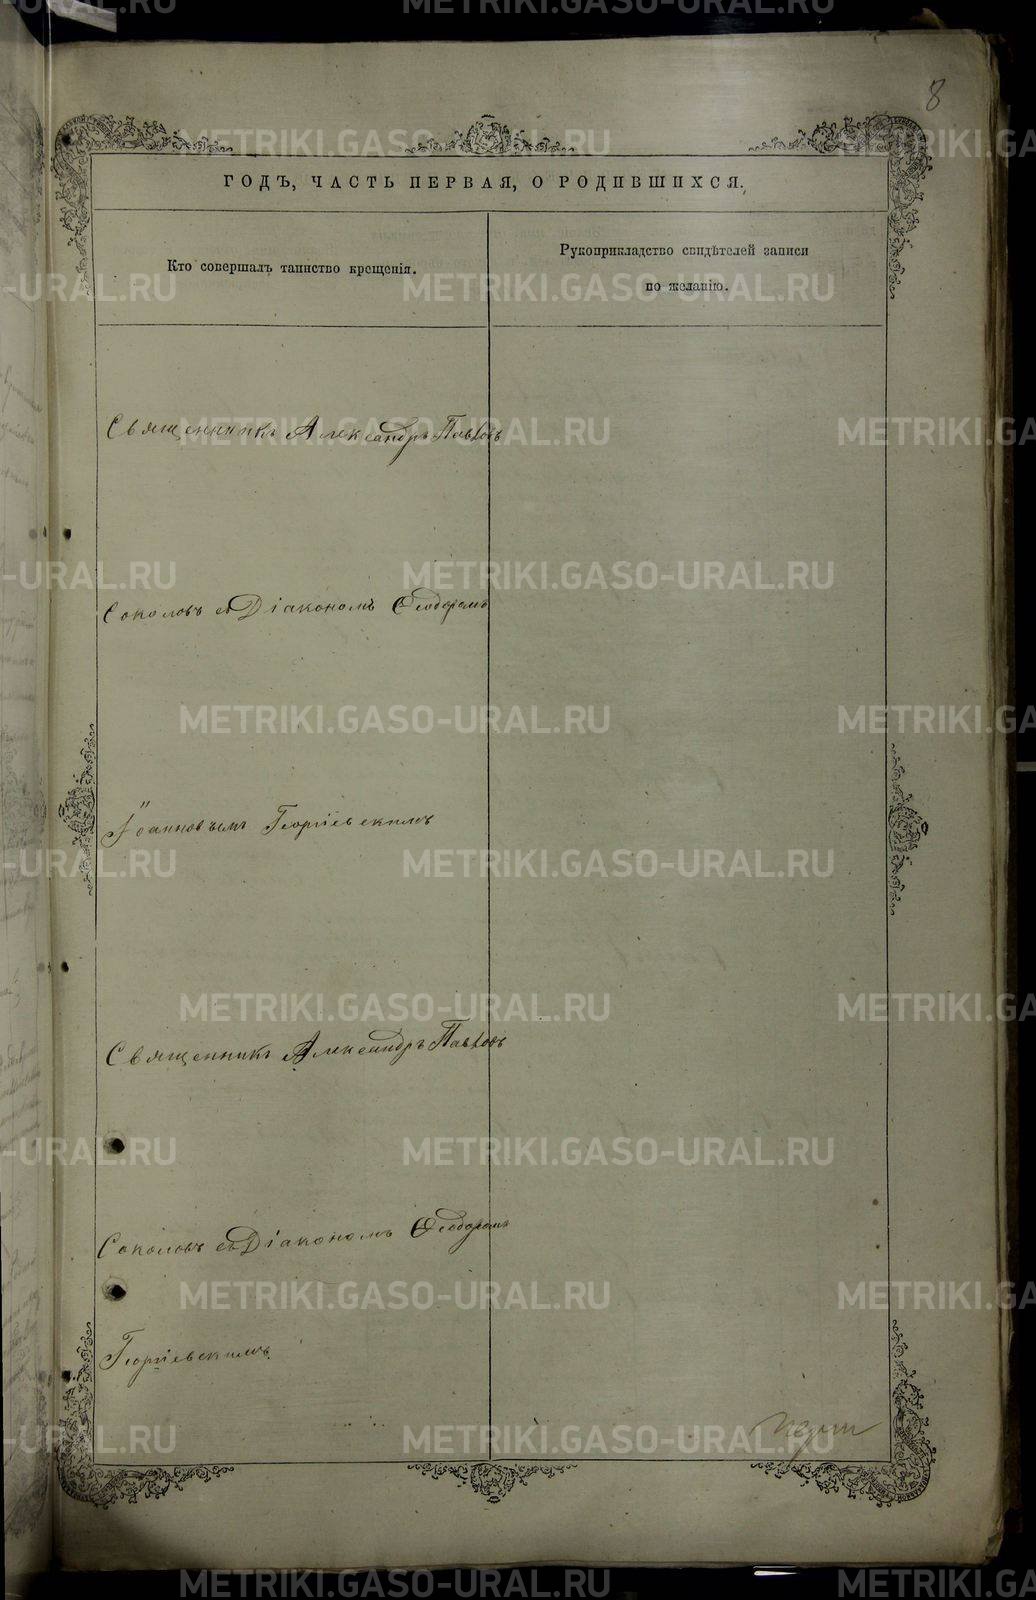 8
ГОДЪ, ЧАСТЬ ПЕРВАЯ, О РОДИВШИХСЯ.
Кто совершалъ таинство крещенія.
Рукоприкладство свидѣтелей записи
по желанію.
Священникъ Александръ Павловъ
Соколовъ съ Діакономъ Ѳеодоромъ
Іоанновымъ Георгіевскимъ
Священникъ Александръ Павловъ
Соколовъ съ Діакономъ Ѳеодоромъ
Георгіевскимъ
METRIKI.GASO-URAL.RU